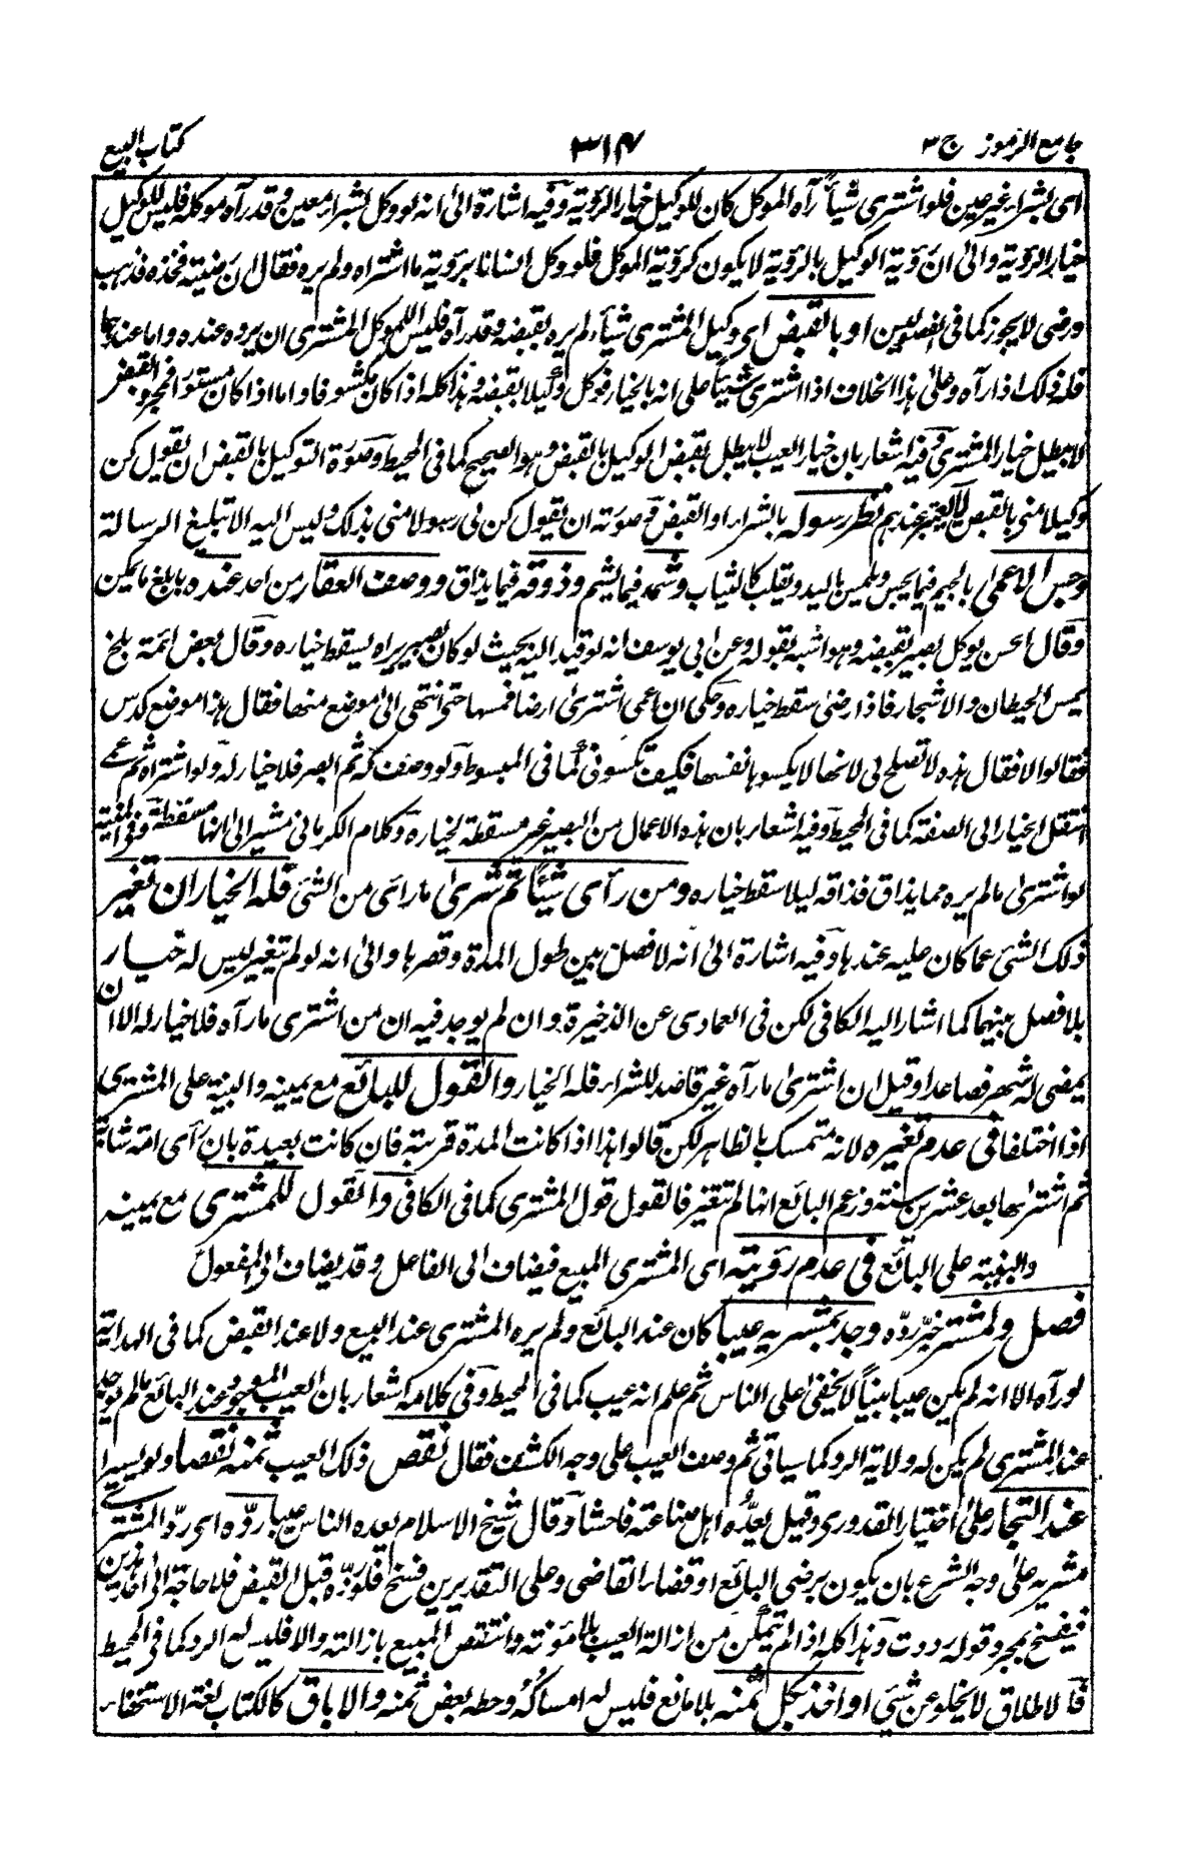 جامع الرموز ج ٣
٣١٤
كتاب البيع
اى بشراء غير عين فلو اشترى شيأ رآه الموكل كان للوكيل خيار الرؤية وفيه اشارة الىٰ انه لو وكل بشراء معين وقد رآه موكله فليس للوكيل
خيار الرؤية والىٰ ان رؤية الوكيل بالرؤية لا يكون كرؤية الموكل فلو وكل انسانا برؤية ما اشتراه ولم يره فقال ان رضيته فخذه فذهب
ورضى لا يجوز كما فى الفصولين او بالقبض اى وكيل المشترى شيأ لم يره بقبضه وقد رآه فليس للموكل المشترى ان يرده عنده واما عندهما
فله ذلك اذا رآه وعلىٰ هذا الخلاف اذا اشترى شيئاً على انه بالخيار فوكل وكيلا بقبضه وهذا كله اذا كان مكشوفا واما اذا كان مستورا فمجرد القبض
لا يبطل خيار المشترى وفيه اشعار بان خيار العيب لا يبطل بقبض الوكيل بالقبض وهو الصحيح كما فى المحيط وصورة التوكيل بالقبض ان يقول كن
وكيلا منى بالقبض لا يعتبر عندهم نظر رسوله بالشراء او القبض وصورته ان يقول كن لى رسولا منى بذلك وليس اليه الا تبليغ الرسالة
وجس الاعمىٰ بالجيم فيما يجس ويلمس باليد ويقلب كالثياب وشمه فيما يشم وذوقه فيما يذاق ووصف العقار من احد عنده بابلغ ما يمكن
وقال الحسن يوكل بصيرا بقبضه وهو اشبه بقوله وعن ابى يوسف انه لو قيد اليه بحيث لو كان بصيرا يراه يسقط خياره وقال بعض ائمة بلخ
يمس الحيطان والاشجار فاذا رضى سقط خياره وحكى ان اعمى اشترىٰ ارضا فمسها حتى انتهى الىٰ موضع منها فقال هذا موضع كدس
فقالوا لا فقال هذه لا تصلح لى لانها لا يكسو ها نفسها فكيف تكسونى كما فى المبسوط ولو وصف له ثم ابصر فلا خيار له ولو اشتراه ثم عمى
انتقل الخيار الى الصفة كما فى المحيط وفيه اشعار بان هذه الاعمال من البصير غير مسقطة لخياره وكلام الكرمانى مشير الىٰ انها مسقطة وفى المنية
لو اشترىٰ مالم يره مما يذاق فذاقه ليلا سقط خياره ومن رأى شيئاً ثم شرىٰ ما رأى من الشئ فله الخيار ان تغير
ذلك الشئ عما كان عليه عندها وفيه اشارة الىٰ انه لا فصل بين طول المدة وقصرها والىٰ انه لو لم تتغير ليس له خيار
بلا فصل بينهما كما اشار اليه الكافى لكن فى العمادى عن الذخيرة وان لم يوجد فيه ان من اشترى ما رآه فلا خيار له الا ان
يمضى له شهر فصاعدا وقيل ان اشترىٰ ما رآه غير قاصد للشراء فله الخيار والقول للبائع مع يمينه والبينة على المشترى
اذا اختلفا فى عدم تغيره لانه متمسك بالظاهر لكن قالوا هذا اذا كانت المدة قريبة فان كانت بعيدة بان رأى امة شابة
ثم اشتراها بعد عشرين سنة وزعم البائع انها لم تتغير فالقول قول المشترى كما فى الكافى والقول للمشترى مع يمينه
والبينة على البائع فى عدم رؤيته اى المشترى المبيع فيضاف الى الفاعل وقد يضاف الى المفعول
فصل ولمشتر خير ردّه وجد بمشريه عيبا كان عند البائع ولم يره المشترى عند البيع ولا عند القبض كما فى الهداية
لو رآه الا انه لم يكن عيبا بيناً لا يخفىٰ على الناس ثم علم انه عيب كما فى المحيط وفى كلامه اشعار بان العيب الموجود عند البائع مالم يوجد
عند المشترى لم يكن له ولاية الرد كما سياتى ثم وصف العيب على وجه الكشف فقال نقص ذلك العيب ثمنه نقصا ولو يسيرا
عند التجار علىٰ اختيار القدورى وقيل يعدّه اهل صناعته فاحشا وقال شيخ الاسلام يعده الناس عيبا ردّه اى ردّ المشترى
مشريه علىٰ وجه الشرع بان يكون برضى البائع او قضاء القاضى وعلى التقديرين فسخ فلو ردّه قبل القبض فلا حاجة الىٰ احد هذين
فيفسخ بمجرد قوله رددت وهذا كله اذا لم يتمكن من ازالة العيب بلا مؤنة وانتقص المبيع بازالته والا فليس له الرد كما فى المحيط
فالاطلاق لا يخلو عن شئ او اخذ بكل ثمنه بلا مانع فليس له امساكه وحطه بعض ثمنه والاباق كالكتاب لغة الاستخفاء